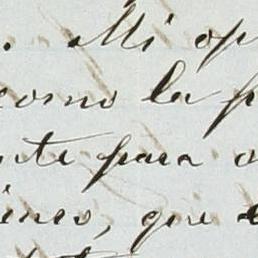 . Mi op
como la p
nte para
ines, que